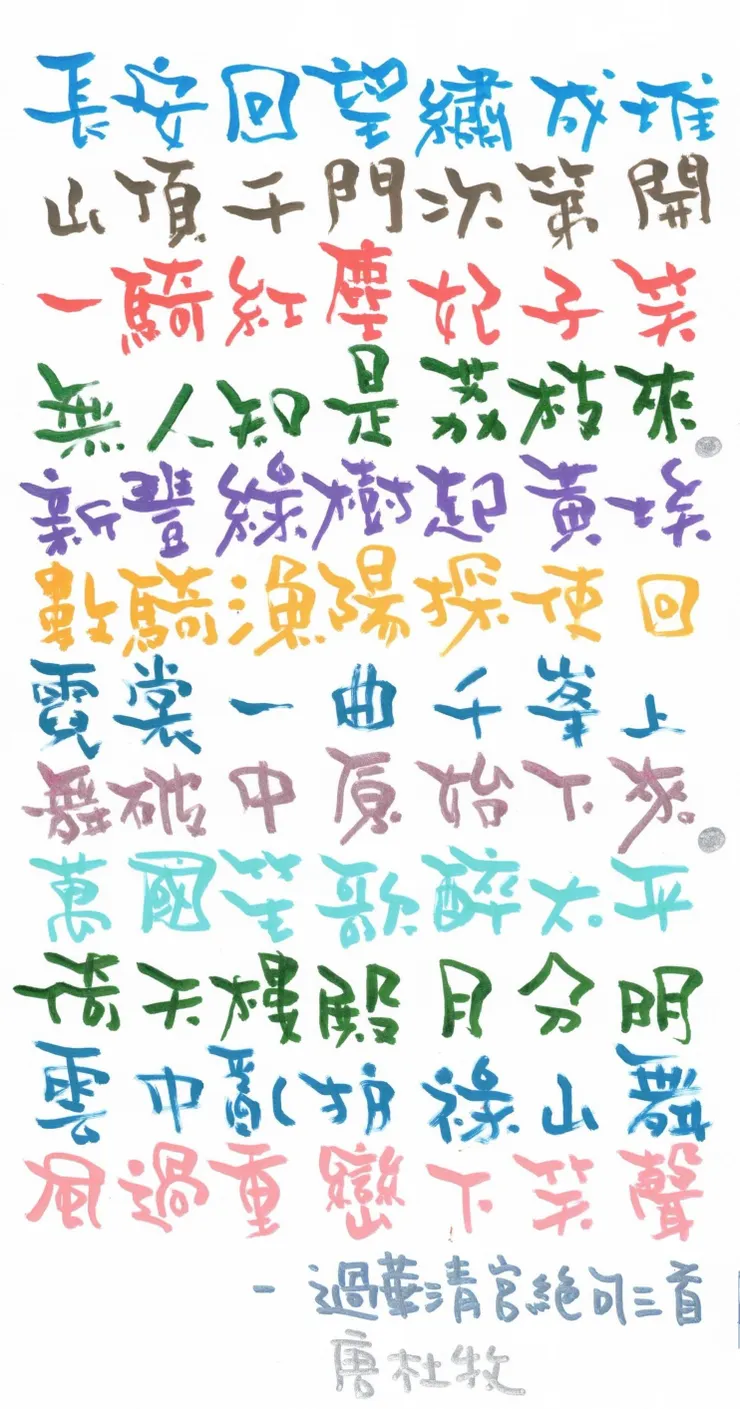 長安回望繡成堆
山頂千門次第開
一騎紅塵妃子笑
無人知是荔枝來。
新豐綠樹起黃埃
數騎漁陽探使回
霓裳一曲千峯上
舞破中原始下來。
萬國笙歌醉太平
倚天樓殿月分明
雲中亂拍祿山舞
風過重巒下笑聲
- 過華清宮絕句三首
唐杜牧